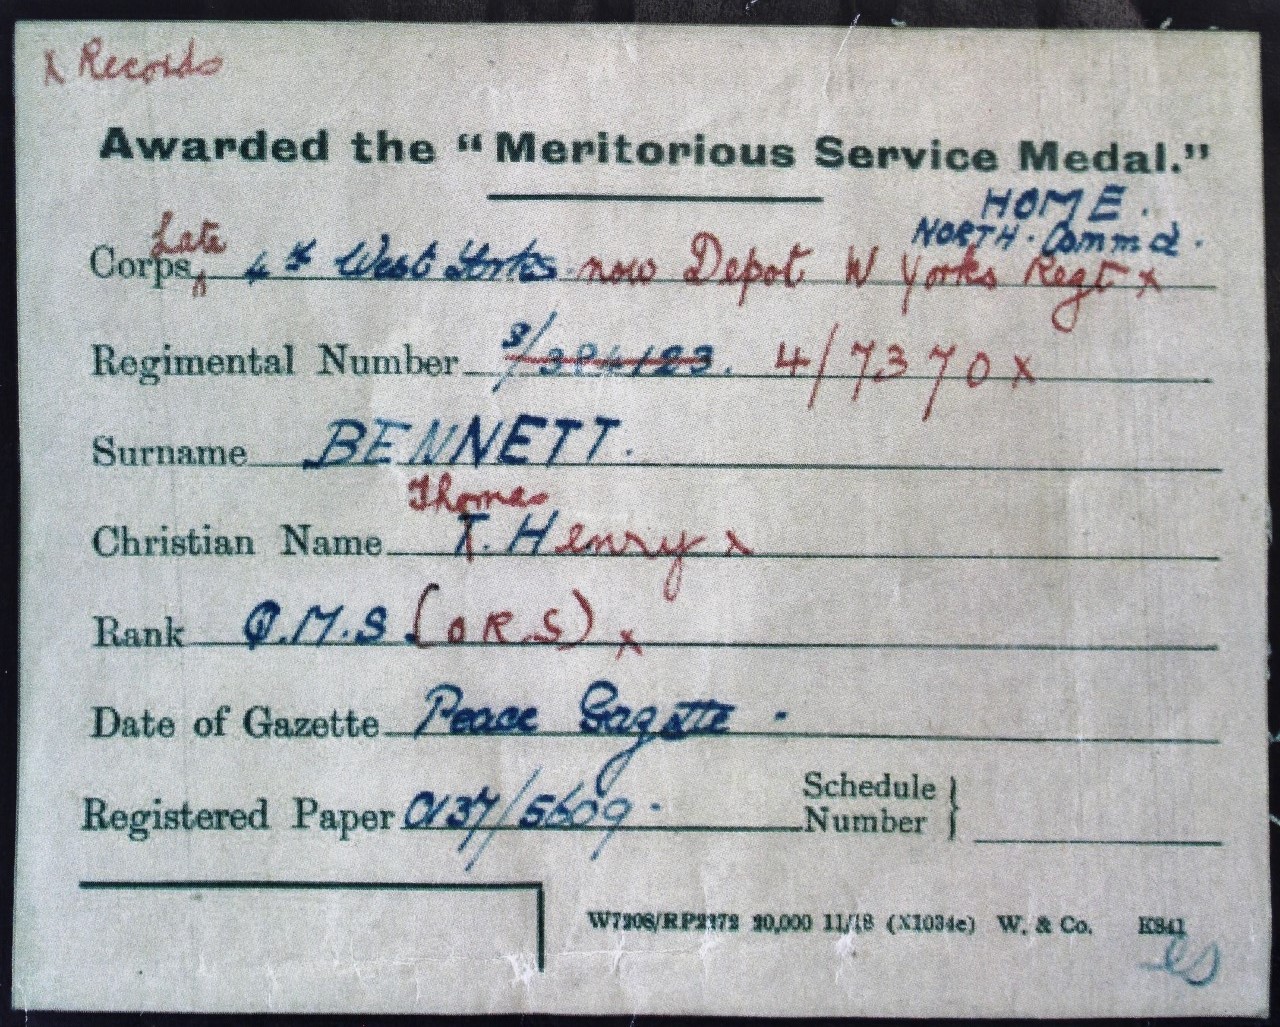 x Records
Awarded the "Meritorious Service Medal."
HOME.
NORTH. Commd.
Late
Corps 4th West Yorks now Depot W Yorks Regt x
Regimental Number 3/ 4/7370 x
Surname BENNETT.
Thomas
Christian Name T. Henry x
Rank Q.M.S (ORS) x
Date of Gazette Peace Gazette -
Registered Paper 0137/5609.
Schedule
Number
W7208/RP2172 20,000 11/18 (X1034e) W. & Co. K841